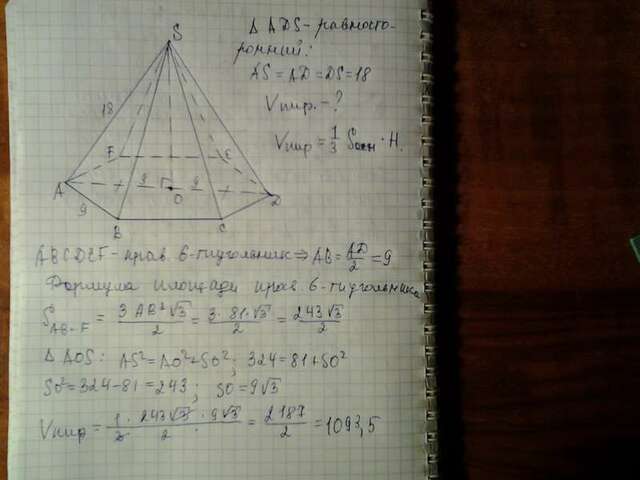 S
Δ ADS - равносто-
ронний:
AS = AD = DS = 18
Vпир. - ?
Vпир = 1/3 Sосн · H.
18
F
E
A
9
9
O
D
9
B
C
ABCDEF - прав. 6-тиугольник ⇒ AB = AD/2 = 9
Формула площади прав. 6-тиугольника
S AB-F = 3 AB²√3/2 = 3·81·√3/2 = 243√3/2
Δ AOS: AS² = AO² + SO²; 324 = 81 + SO²
SO² = 324 - 81 = 243; SO = 9√3
Vпир = 1 · 243√3 · 9√3/3 · 2 = 2187/2 = 1093,5